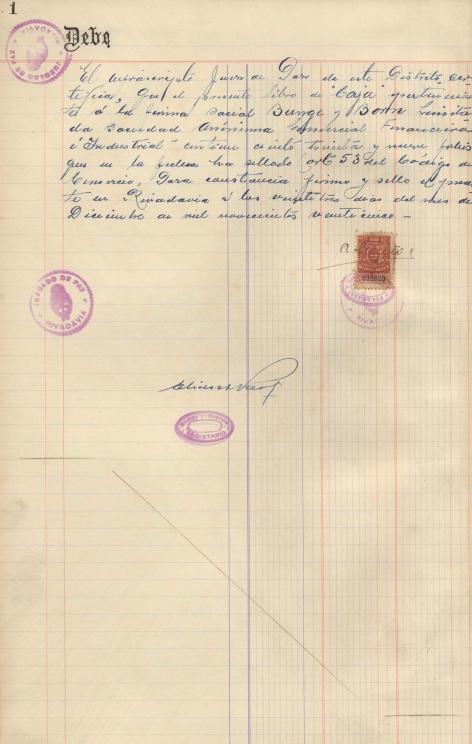 1
JUZGADO DE PAZ
RIVADAVIA
Debe
El infrascripto Juez de Paz de este Distrito, cer-
tifica, que el presente libro de "Caja" pertenecien-
te á la firma social Bunge y Born Limita
da Sociedad Anónima Comercial Financiera
é Industrial" contiene ciento treinta y nueve folios
que en la fecha ha sellado (art 53 del Código de
Comercio, Para constancia firmo y sello el presen
te en Rivadavia á los veintitres dias del mes de
Diciembre de mil novecientos veinticinco -
038820
JUZGADO DE PAZ
RIVADAVIA
RIVA
SECRETARIO